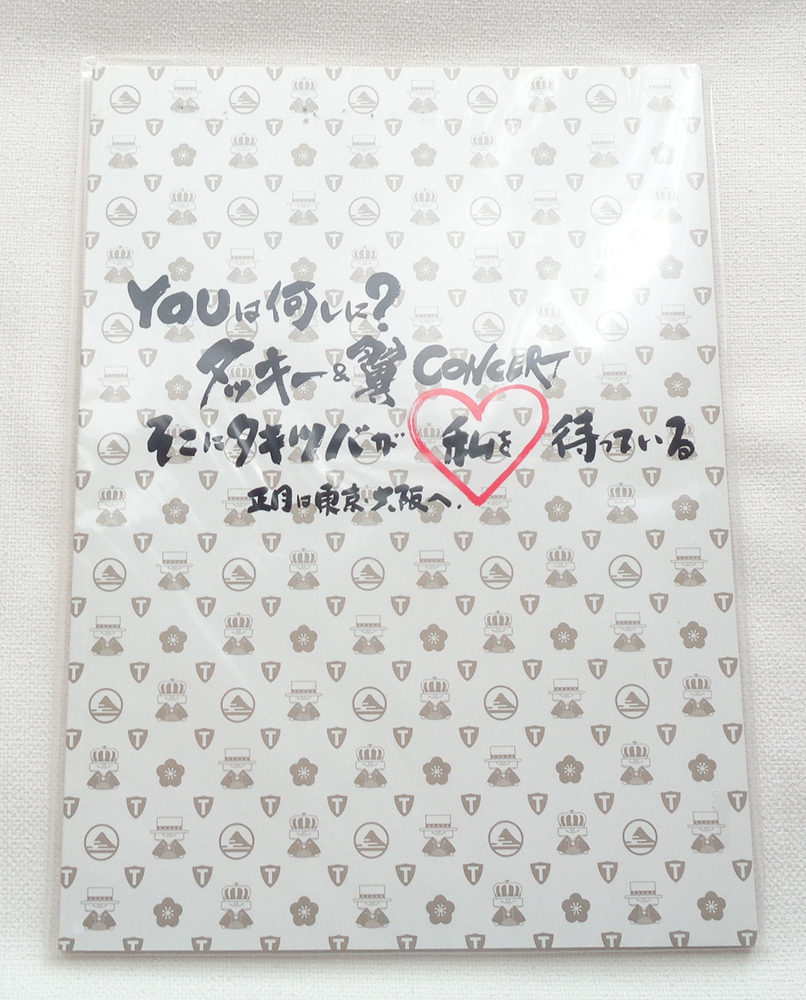 YOUは何しに?
タッキー&翼 CONCERT
そこにタキツバが 私を 待っている
正月は東京・大阪へ.